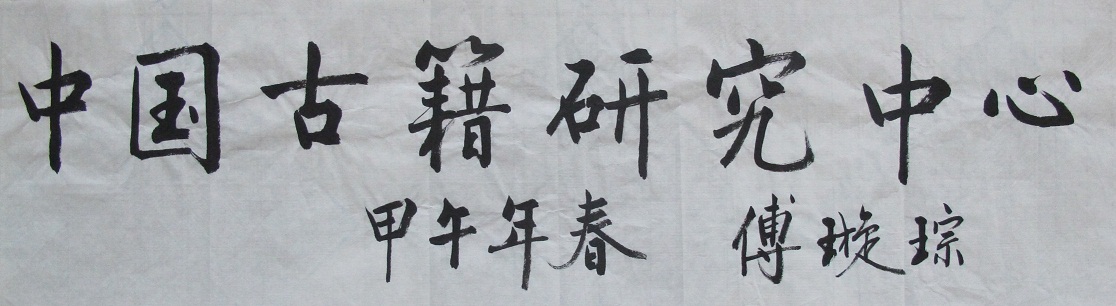 中国古籍研究中心
甲午年春 傅璇琮